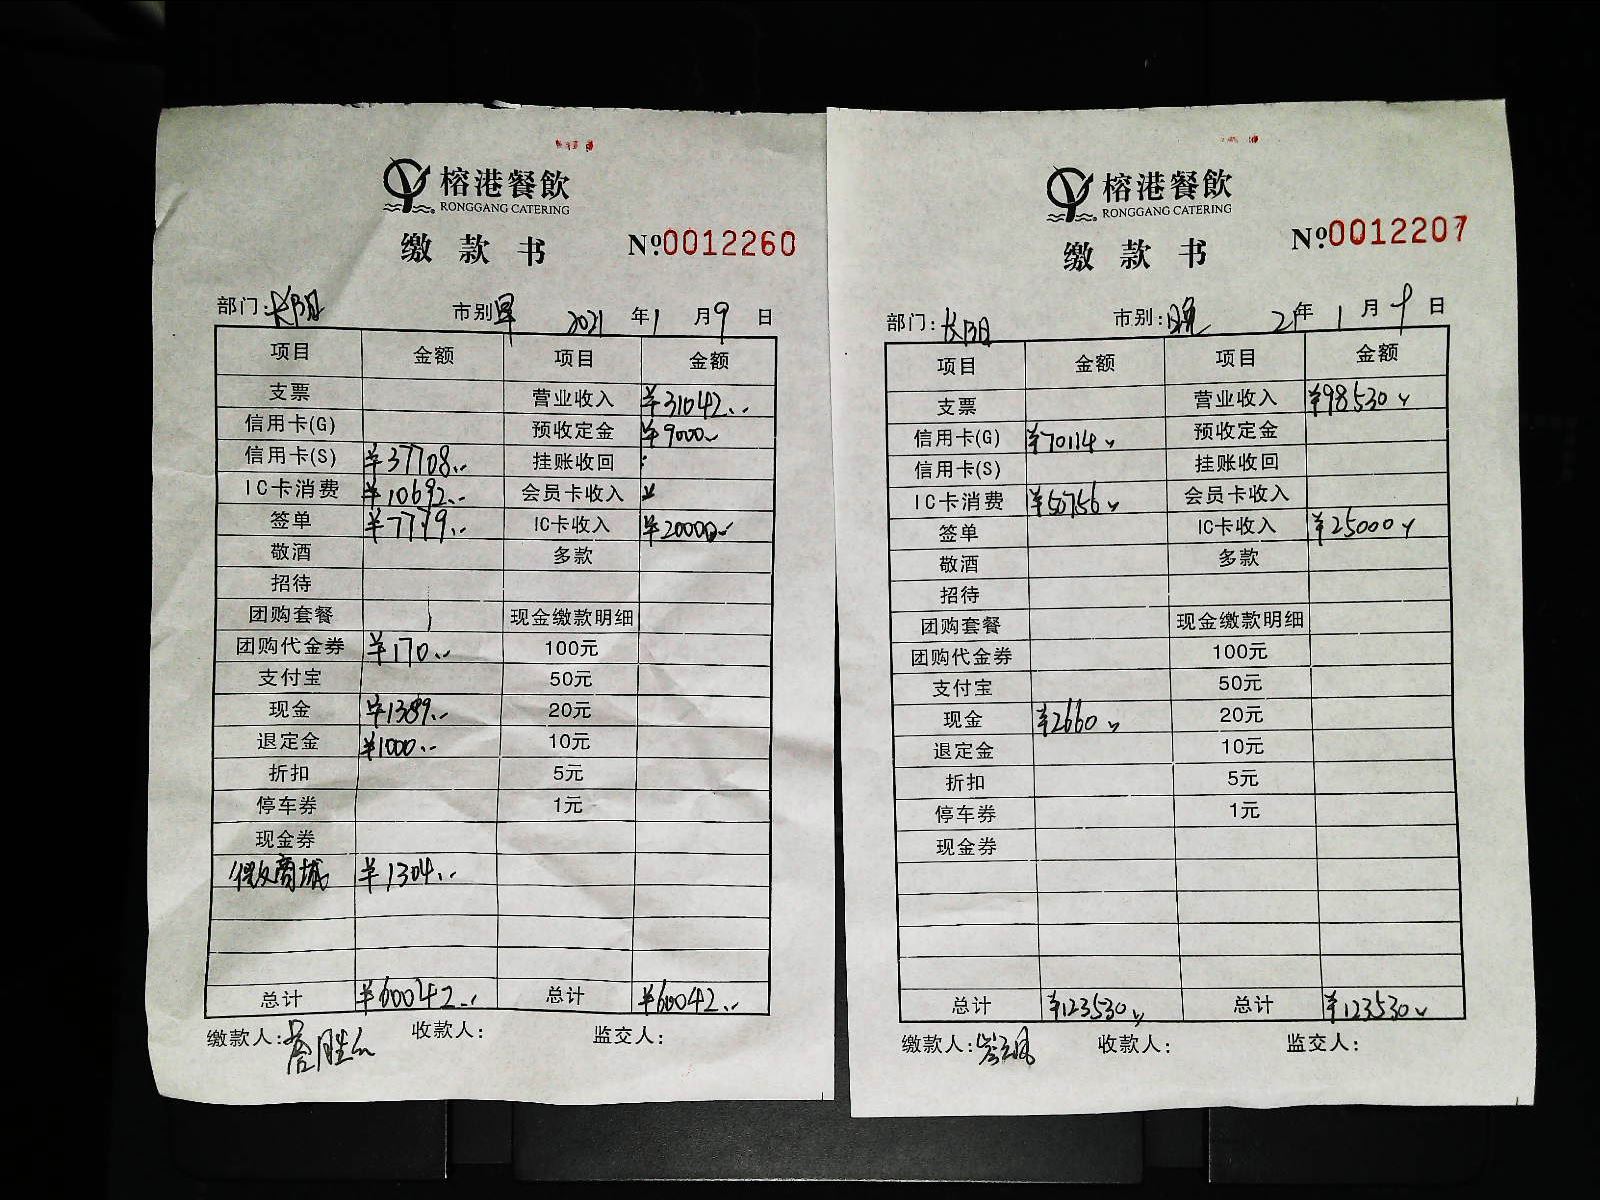 榕港餐飲
RONGGANG CATERING
缴款书 №0012260
部门:长阳 市别早 2021年1月9日
项目 金额 项目 金额
支票 营业收入 ¥31042..
信用卡(G) 预收定金 ¥9000..
信用卡(S) ¥37708.. 挂账收回
IC卡消费 ¥10692.. 会员卡收入
签单 ¥7779.. IC卡收入 ¥20000..
敬酒 多款
招待
团购套餐 现金缴款明细
团购代金券 ¥170.. 100元
支付宝 50元
现金 ¥1389.. 20元
退定金 ¥1000.. 10元
折扣 5元
停车券 1元
现金券
商城 ¥1304..
总计 ¥60042.. 总计 ¥60042..
缴款人: 收款人: 监交人:
榕港餐飲
RONGGANG CATERING
缴款书 №0012207
部门:长阳 市别:晚 21年1月9日
项目 金额 项目 金额
支票 营业收入 ¥98530
信用卡(G) ¥70114 预收定金
信用卡(S) 挂账收回
IC卡消费 ¥50756 会员卡收入
签单 IC卡收入 ¥25000
敬酒 多款
招待
团购套餐 现金缴款明细
团购代金券 100元
支付宝 50元
现金 ¥2660 20元
退定金 10元
折扣 5元
停车券 1元
现金券
总计 ¥123530 总计 ¥123530
缴款人: 收款人: 监交人: